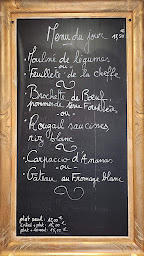 Menu du jour
Mouliné de légumes
ou
Feuilleté de la cheffe
Brochette de Boeuf
pommes de terre
ou
Rougail saucisses
riz blanc
Carpaccio d'Ananas
ou
Gateau au Fromage blanc
plat seul:
entrée + plat:
plat + dessert: